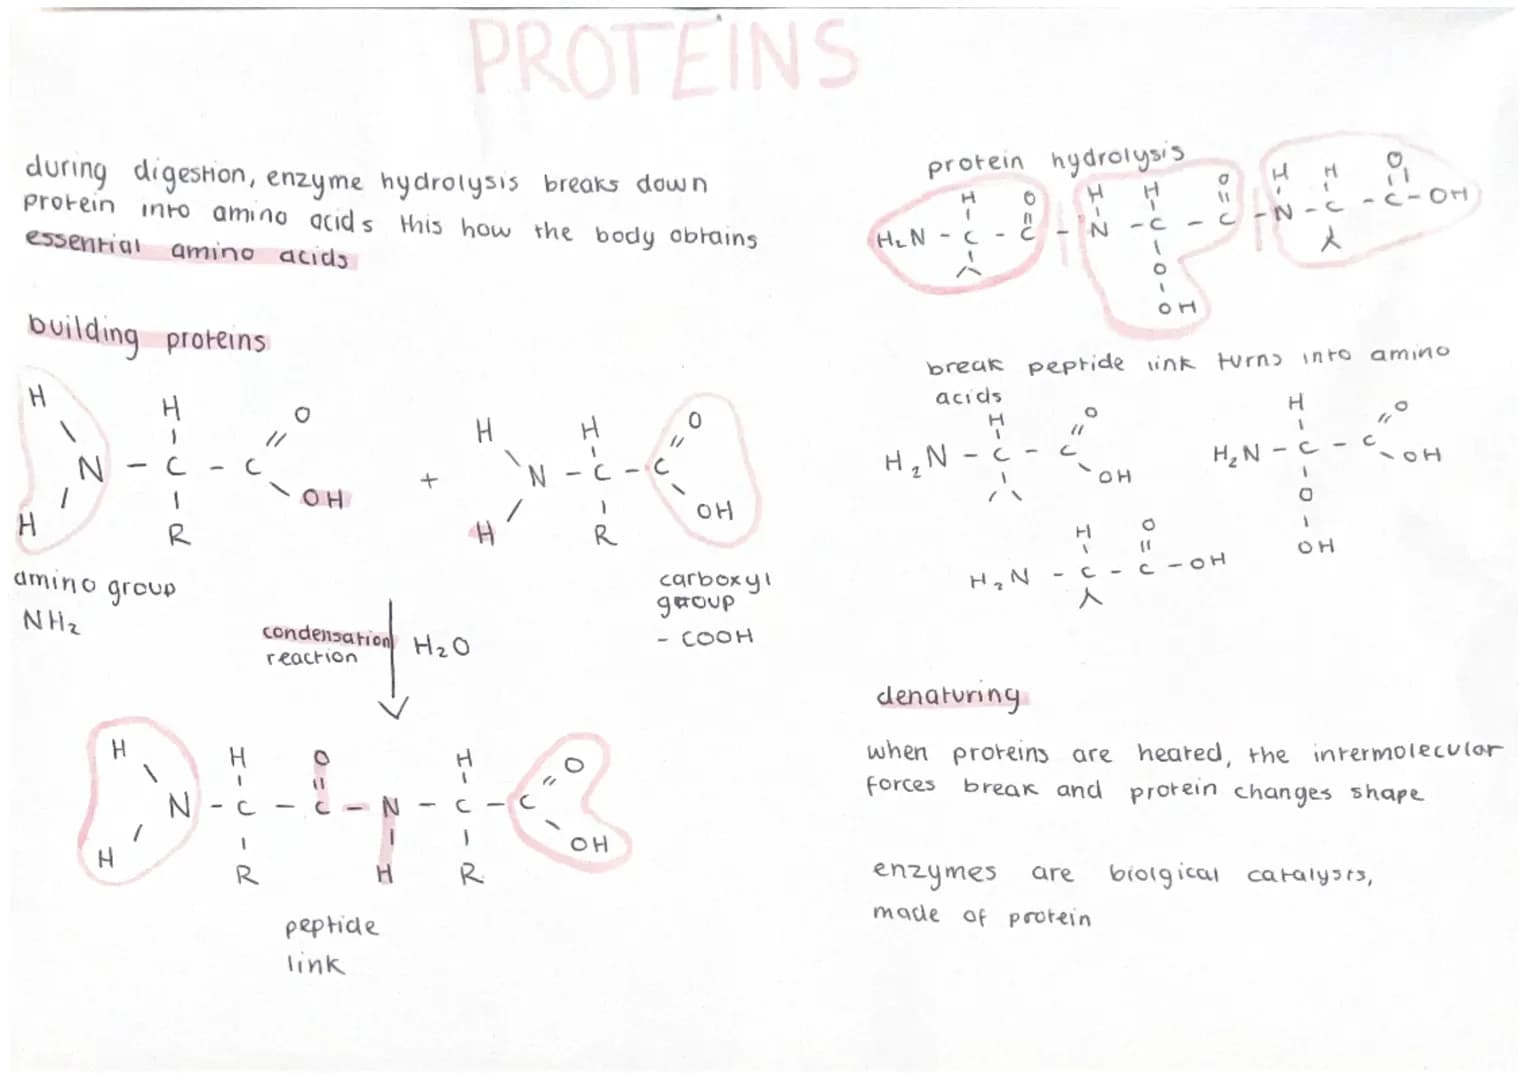 PROTEINS
during digestion, enzyme hydrolysis breaks down
protein into amino acids this how the body obtains
essential amino acids
building proteins
H
H O
N - C - C
H R OH
+
H H O
N - C - C
H R OH
amino group
NH2
carboxyl
group
- COOH
condensation H2O
reaction
H H O H O
N - C - C - N - C - C
H R H R OH
peptide
link
protein hydrolysis
H O H H O H H O
H2N - C - C - N - C - C - N - C - C - OH
O
OH
break peptide link turns into amino
acids
H O
H2N - C - C
OH
H O
H2N - C - C
OH
O
OH
H O
H2N - C - C - OH
denaturing
when proteins are heated, the intermolecular
forces break and protein changes shape
enzymes are biolgical catalysts,
made of protein